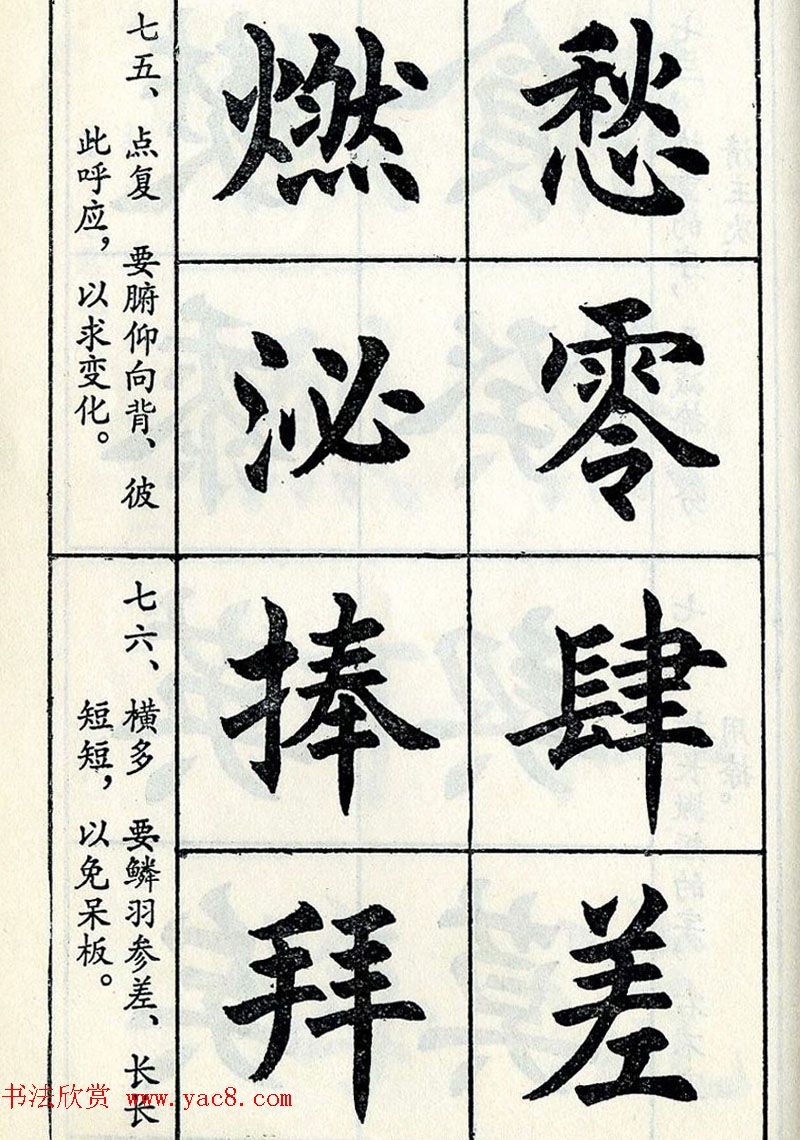 愁零
燃泌
七五、点复 要腑仰向背、彼
此呼应，以求变化。
肆差
捧拜
七六、横多 要鳞羽参差、长长
短短，以免呆板。
书法欣赏 www.yac8.com